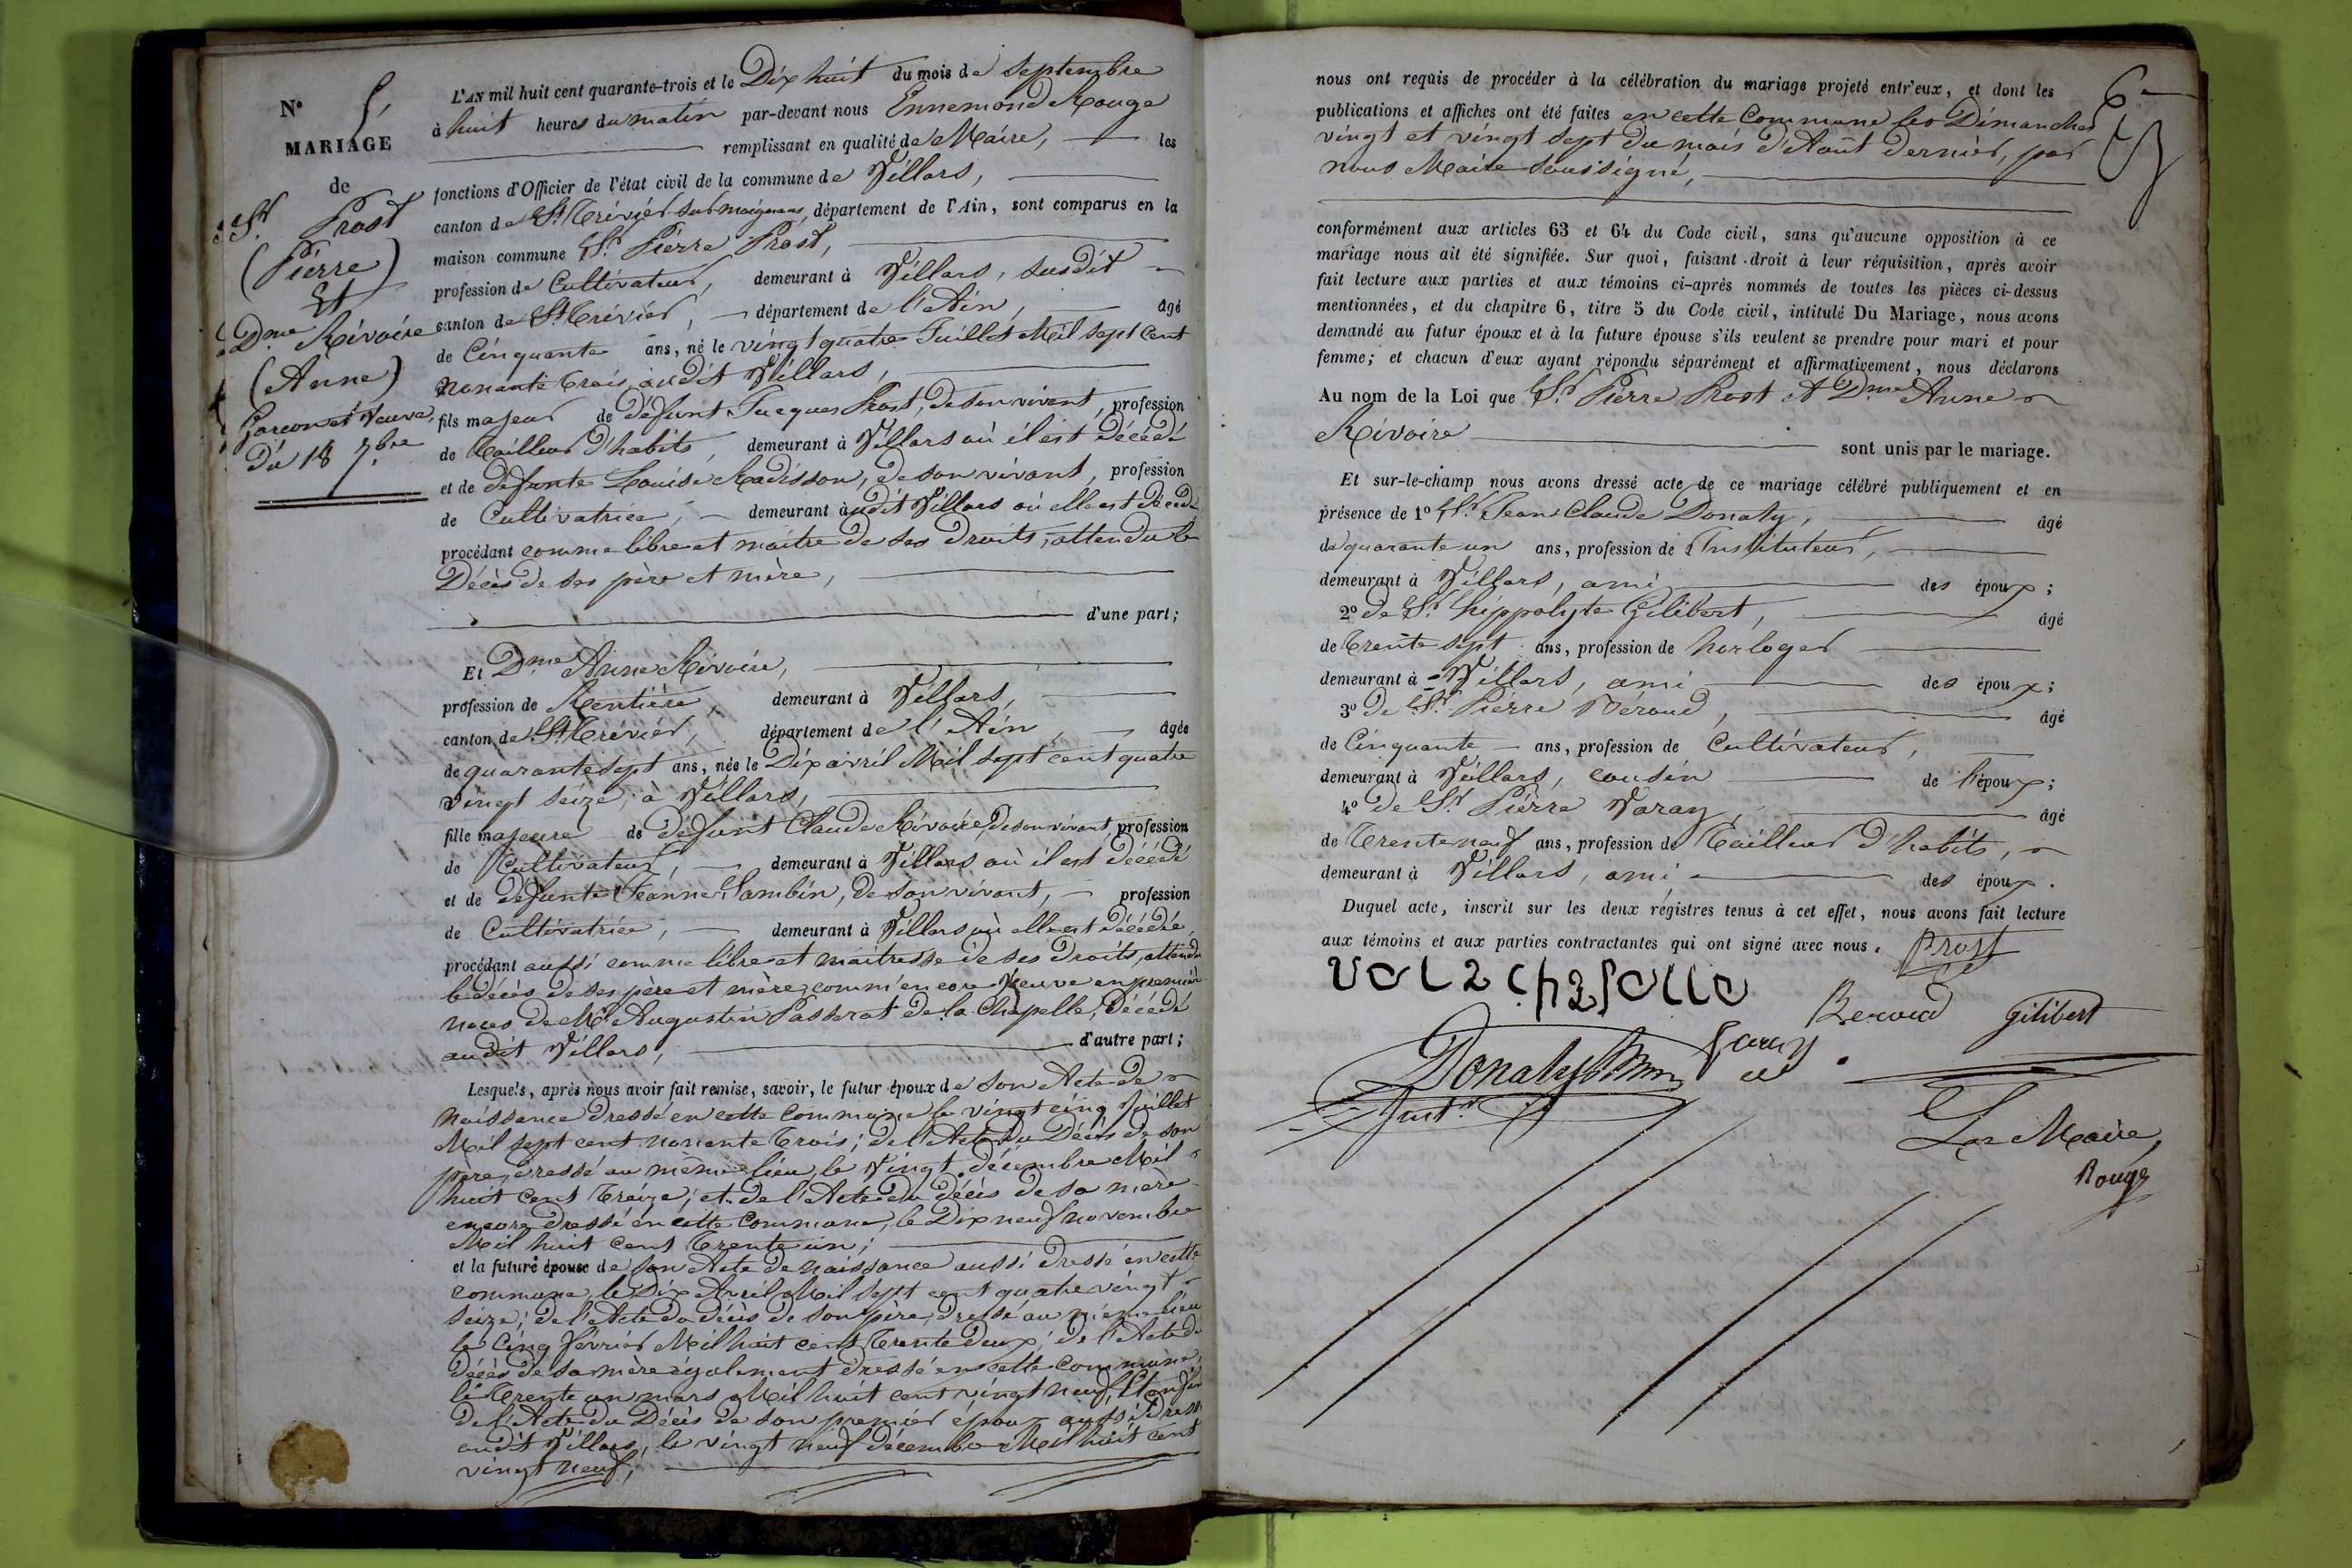 N° 5,
MARIAGE
de
Sr. Prost
(Pierre)
Et
Dme Rivoire
(Anne)
Garçon et Veuve,
Du 18 7bre
L'AN mil huit cent quarante-trois et le Dix huit du mois de Septembre
à huit heures du matin par-devant nous Ennemond Rouge
remplissant en qualité de Maire, les
fonctions d'Officier de l'état civil de la commune de Villars,
canton de St. Trévier sur moignans, département de l'Ain, sont comparus en la
maison commune Sr. Pierre Prost,
profession de Cultivateur, demeurant à Villars, susdit
canton de St. Trévier, département de l'Ain, âgé
de Cinquante ans, né le vingt quatre Juillet Mil sept Cent
nonante trois, audit Villars,
fils majeur de défunt Jacques Prost, de son vivant, profession
de tailleur d'habits, demeurant à Villars où il est décédé
et de défunte Louise Madisson, de son vivant, profession
de Cultivatrice, demeurant audit Villars où elle est décédé
procédant comme libre et maître de ses Droits, attendu le
Décès de ses père et mère,
d'une part;
Et Dme Anne Rivoire,
profession de Rentière, demeurant à Villars,
canton de St Trévier, département de l'Ain, âgée
de quarante sept ans, née le Dix avril Mil sept cent quatre
vingt seize, à Villars,
fille majeure de défunt Claude Rivoire, de son vivant, profession
de Cultivateur, demeurant à Villars où il est décédé
et de défunte Jeanne Sambin, de son vivant, profession
de Cultivatrice, demeurant à Villars où elle est décédée,
procédant aussi comme libre et maîtresse de ses droits, attendu
le décès de ses père et mère, comm'encore Veuve en premièr
noces de Mr. Augustin Passerat de la Chapelle, Décédé
audit Villars, d'autre part;
Lesquels, après nous avoir fait remise, savoir, le futur époux de son Acte de
naissance dressé en cette commune le vingt cinq Juillet
Mil sept cent nonante trois; de l'Acte du Décès de son
père, dressé au même lieu, le Vingt décembre Mil
huit cent treize; et de l'Acte du décès de sa mère
encore dressé en cette Commune, le Dix neuf novembre
Mil huit cent trente un;
et la future épouse de son Acte de naissance aussi dressé en cette
commune, le Dix Avril Mil sept cent quatre vingt
seize; de l'Acte du décès de son père, dressé au même lieu
le Cinq février Mil huit cent trente deux; de l'Acte de
décès de sa mère également dressé en cette Commune,
le trente un mars Mil huit cent vingt neuf, Et enfin
de l'Acte du Décès de son premier époux aussi dressé
audit Villars, le vingt neuf décembre Mil huit cent
vingt neuf,
6
nous ont requis de procéder à la célébration du mariage projeté entr'eux, et dont les
publications et affiches ont été faites en cette Commune les Dimanches
vingt et vingt sept du mois d'Août dernier, par
nous Maire soussigné,
conformément aux articles 63 et 64 du Code civil, sans qu'aucune opposition à ce
mariage nous ait été signifiée. Sur quoi, faisant droit à leur réquisition, après avoir
fait lecture aux parties et aux témoins ci-après nommés de toutes les pièces ci-dessus
mentionnées, et du chapitre 6, titre 5 du Code civil, intitulé Du Mariage, nous avons
demandé au futur époux et à la future épouse s'ils veulent se prendre pour mari et pour
femme; et chacun d'eux ayant répondu séparément et affirmativement, nous déclarons
Au nom de la Loi que Sr. Pierre Prost et Dme Anne
Rivoire sont unis par le mariage.
Et sur-le-champ nous avons dressé acte de ce mariage célébré publiquement et en
présence de 1° Sr. Jean Claude Donaty, âgé
de quarante un ans, profession de Instituteur,
demeurant à Villars, ami des époux;
2° de Sr. hippolyte Gilibert, âgé
de trente sept ans, profession de horloger
demeurant à Villars, ami des époux;
3° de Sr. Pierre Béroud, âgé
de Cinquante ans, profession de Cultivateur,
demeurant à Villars, cousin de l'époux;
4° de Sr Pierre Varay, âgé
de trente neuf ans, profession de tailleur d'habits,
demeurant à Villars, ami des époux.
Duquel acte, inscrit sur les deux régistres tenus à cet effet, nous avons fait lecture
aux témoins et aux parties contractantes qui ont signé avec nous. Prost
Beroud gilibert
Varay
Donaty
Instr.
Le Maire,
Rouge